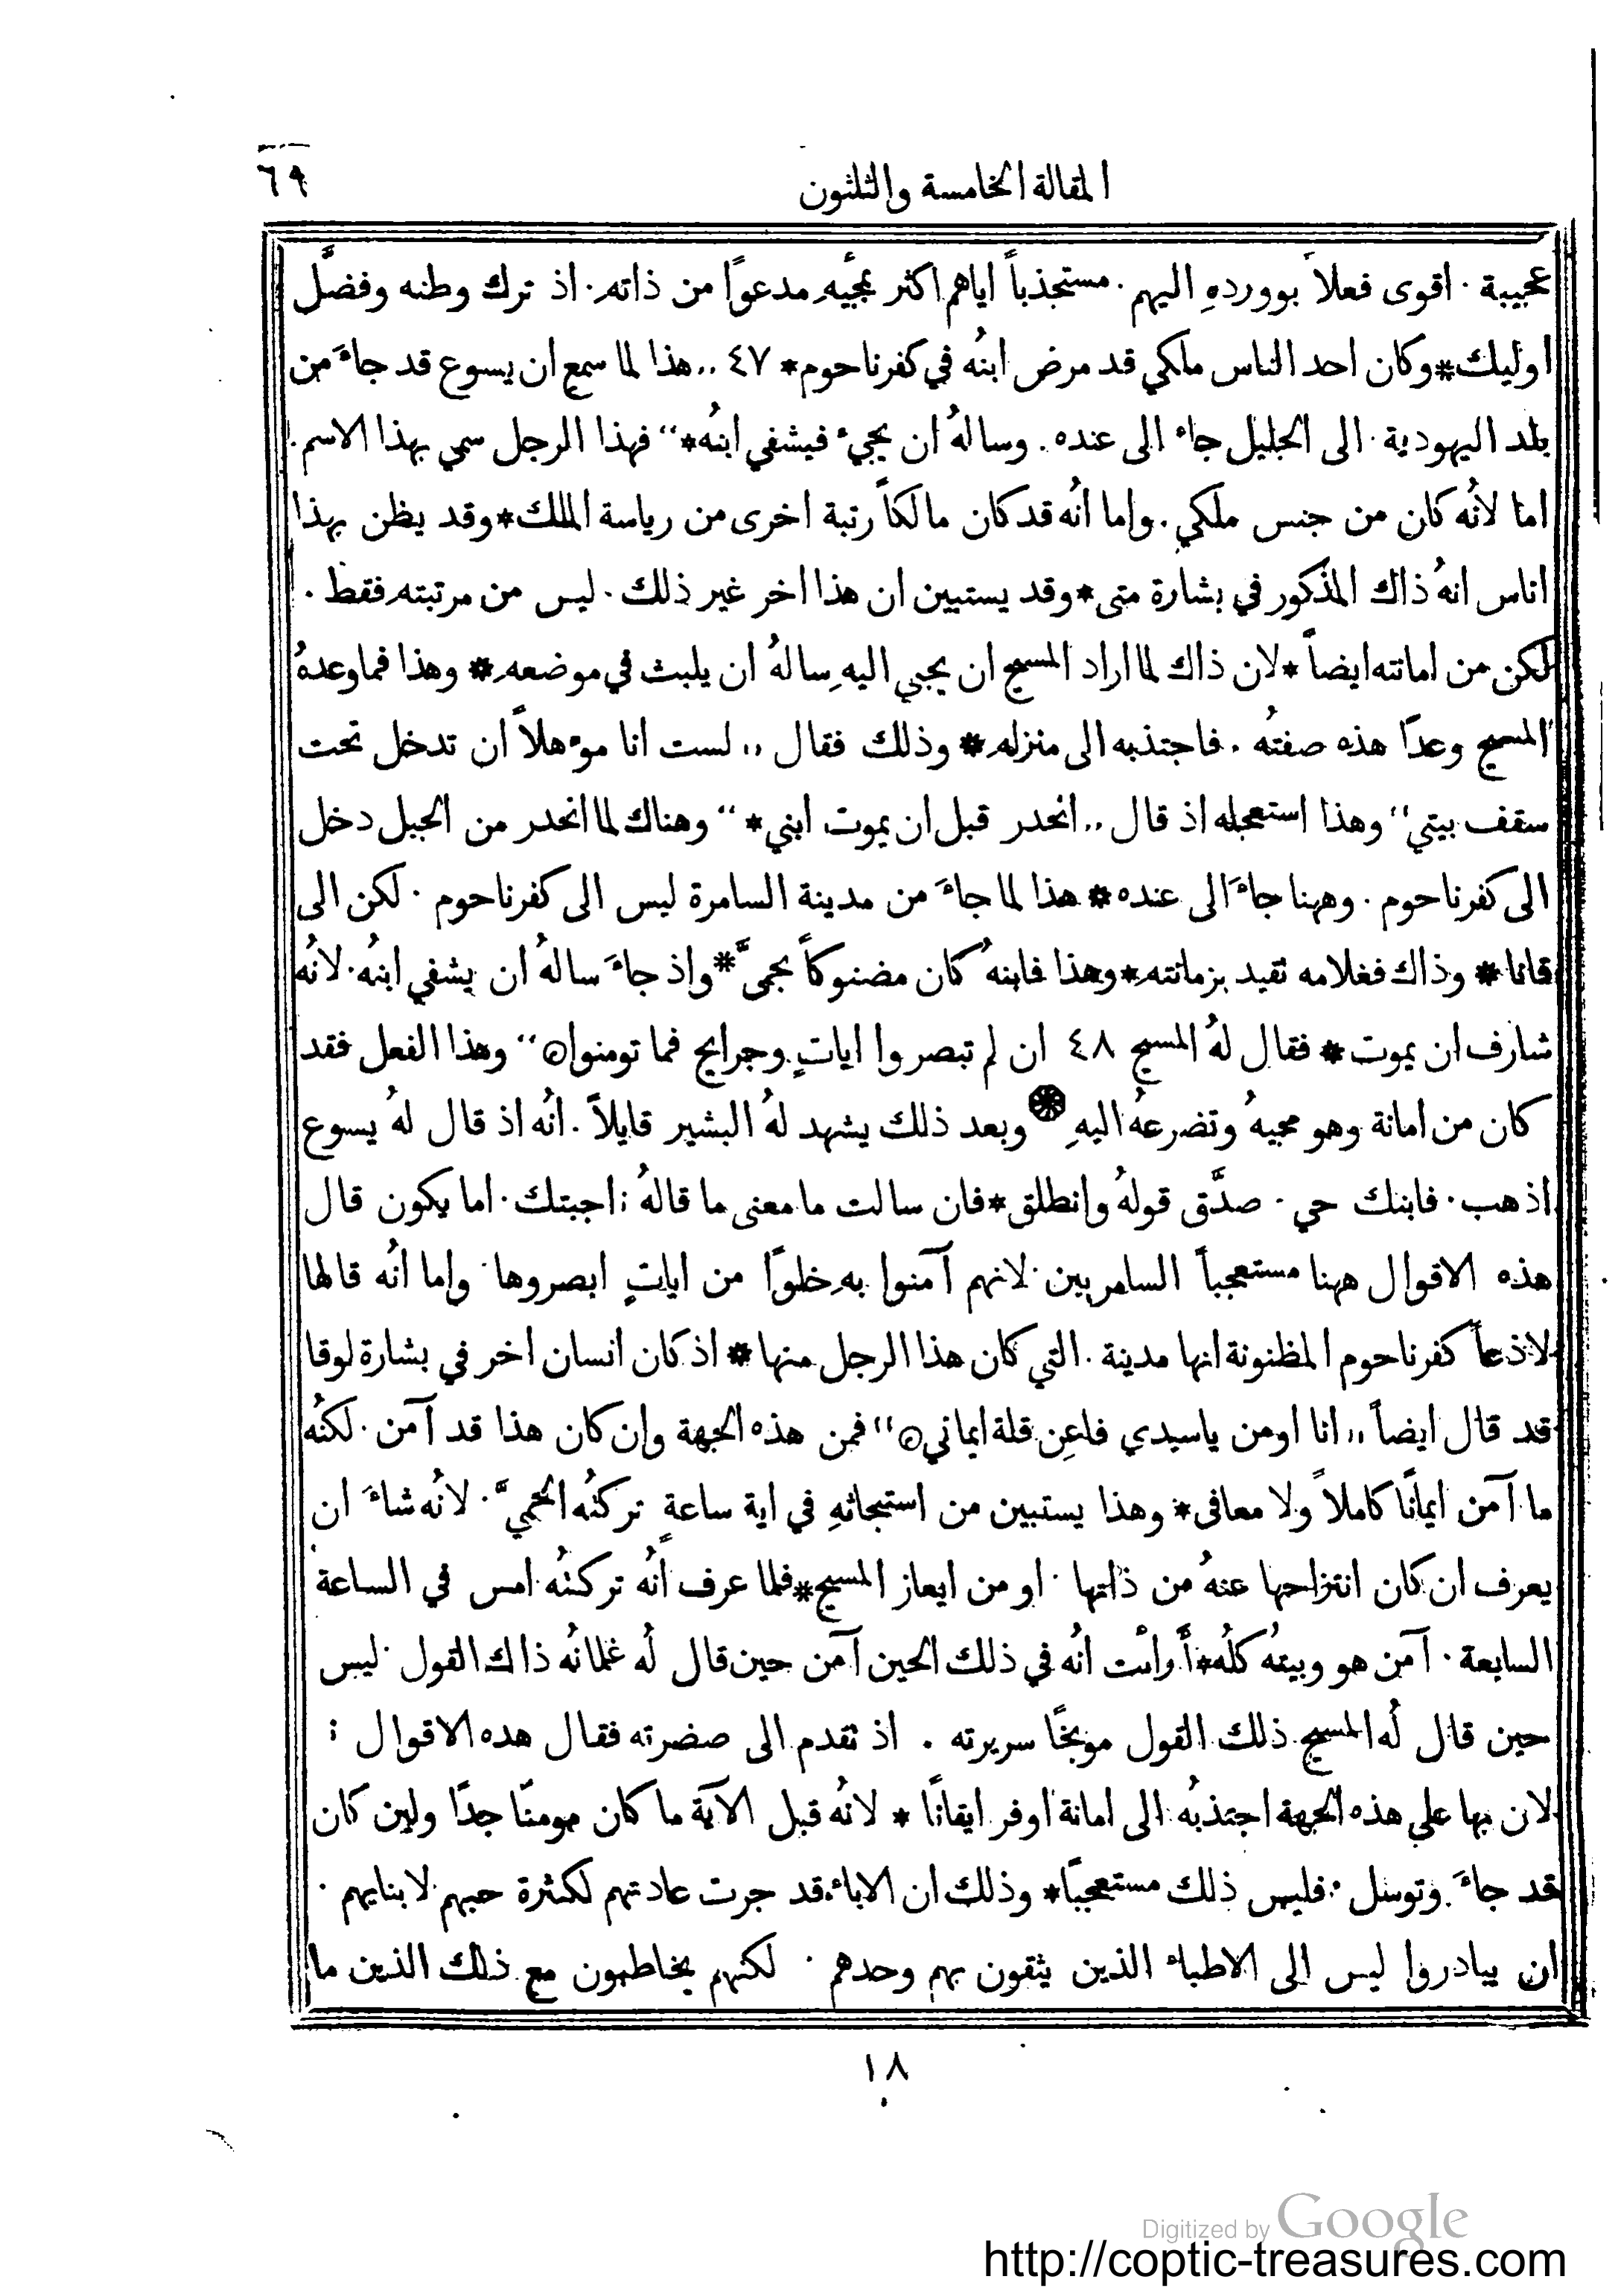 المقالة الخامسة والثلثون
٦٩
عجيبة · اقوى فعلاً بوورده اليهم · مستجذباً اياهم اكثر بمجيّه مدعوًا من ذاته · اذ ترك وطنه وفضَّل
اوليك * وكان احد الناس ملكي قد مرض ابنُه في كفرناحوم * ٤٧ ,, هذا لما سمع ان يسوع قد جاءَ من
بلد اليهودية · الى الجليل جاء الى عنده . وسالهُ ان يجيء فيشفي ابنُه * ʻʻ فهذا الرجل سمي بهذا الاسم .
اما لانُه كان من جنس ملكي . واما انُه قد كان مالكاً رتبة اخرى من رياسة الملك * وقد يظن بهذا
اناس انهُ ذاك المذكور في بشارة متى * وقد يستبين ان هذا اخر غير ذلك . ليس من مرتبتهِ فقط .
لكن من امانته ايضاً * لان ذاك لما اراد المسيح ان يجيي اليهِ سالهُ ان يلبث في موضعهِ * وهذا فما وعدهُ
المسيح وعدًا هذه صفتُه . فاجتذبه الى منزلهِ * وذلك فقال ,, لست انا موءهلاً ان تدخل تحت
سقف بيتي ʻʻ وهذا استعجله اذ قال ,, انحدر قبل ان يموت ابني * ʻʻ وهناك لما انحدر من الجبل دخل
الى كفرناحوم . وههنا جاءَ الى عنده * هذا لما جاءَ من مدينة السامرة ليس الى كفرناحوم · لكن الى
قانا * وذاك فغلامه تقيد بزمانتهِ * وهذا فابنهُ كان مضنوكاً بحمىَّ * واذ جاءَ سالهُ ان يشفي ابنُه · لانُه
شارف ان يموت * فقال لهُ المسيح ٤٨ ان لم تبصروا اياتٍ وجرايح فما تومنوا ʻʻ وهذا الفعل فقد
كان من امانة وهو مجيهُ وتضرعهُ اليهِ * وبعد ذلك يشهد لهُ البشير قايلاً . انُه اذ قال لهُ يسوع
اذهب · فابنك حي · صدَّق قولهُ وانطلق * فان سالت ما معنى ما قالهُ : اجبتك · اما يكون قال
هذه الاقوال ههنا مستعجباً السامريين · لانهم آمنوا بهِ خلوًا من اياتٍ ابصروها · واما انُه قالها
لاذعاً كفرناحوم المظنونة انها مدينة . التي كان هذا الرجل منها * اذ كان انسان اخر في بشارة لوقا
قد قال ايضاً ,, انا اومن ياسيدي فاعِن قلة ايماني ʻʻ فمن هذه الجهة وان كان هذا قد آمن · لكنُه
ما آمن ايمانًا كاملاً ولا معافى * وهذا يستبين من استبحاثهِ في اية ساعةٍ تركتُه الحمىَّ · لانُه شاءَ ان
يعرف ان كان انتزاحها عنهُ من ذاتها · او من ايعاز المسيح * فلما عرف أنُه تركتُه امس في الساعة
السابعة · آمن هو وبيتُه كلُه * أرأىت انُه في ذلك الحين آمن حين قال لُه غلمانُه ذاك القول · ليس
حين قال لُه المسيح ذلك القول موبخًا سريرته . اذ تقدم الى صضرته فقال هده الاقوال :
لان بها علي هذه الجهة اجتذبُه الى امانة اوفر ايقانًا * لانُه قبل الآية ما كان مومنًا جدًا ولين كان
قد جاءَ وتوسل · فليس ذلك مستعجبًا * وذلك ان الاباء قد جرت عادتهم لكثرة حبهم لابنايهم ·
ان يبادروا ليس الى الاطباء الذين يثقون بهم وحدهم · لكنهم يخاطبون مع ذلك الذين ما
١٨
Digitized by Google
http://coptic-treasures.com